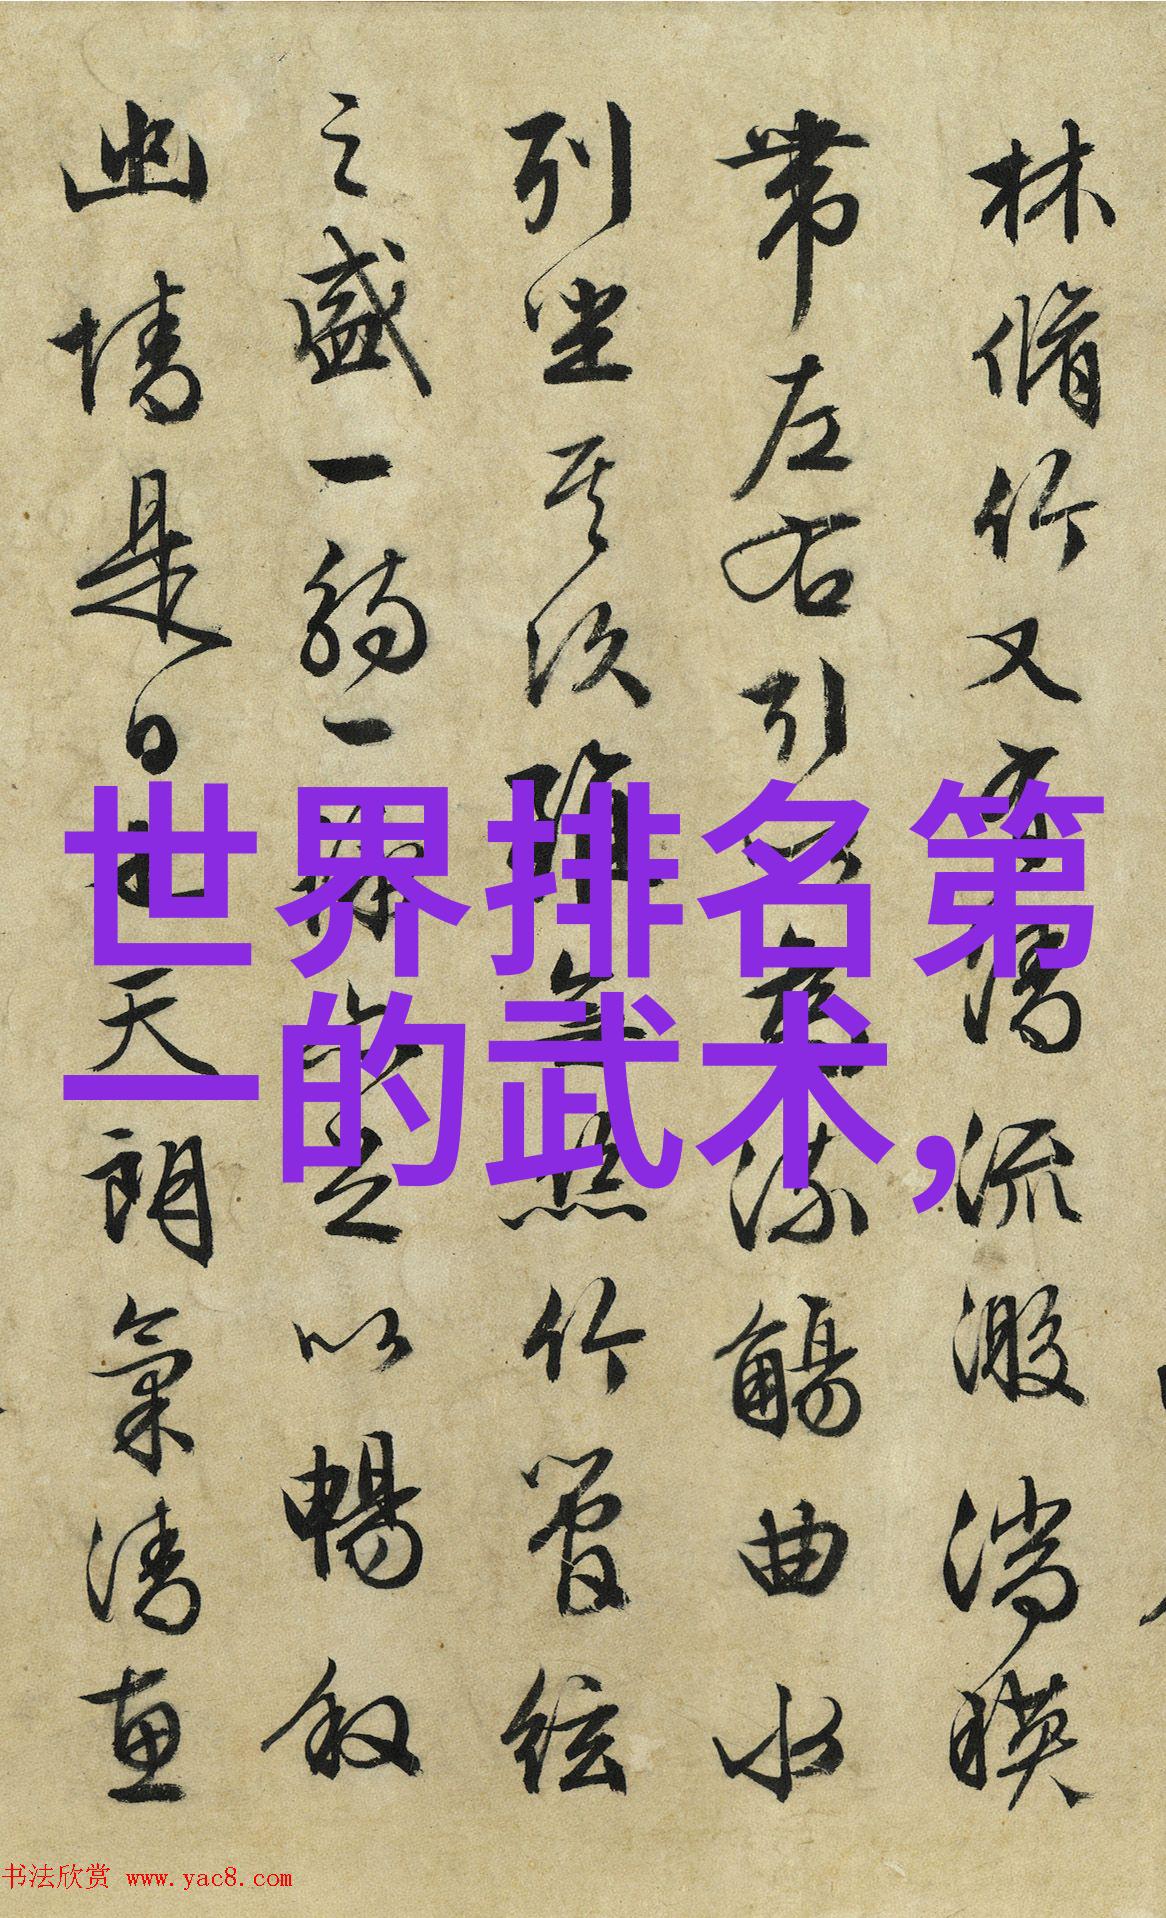 林脩竹又有清流激湍暎
帶左右引以為流觴曲水
列坐其次雖無絲竹管弦
之盛一觴一詠亦足以暢叙
幽情是日也天朗氣清惠
世界排名第
一的武术,
书法欣赏 www.yac8.com